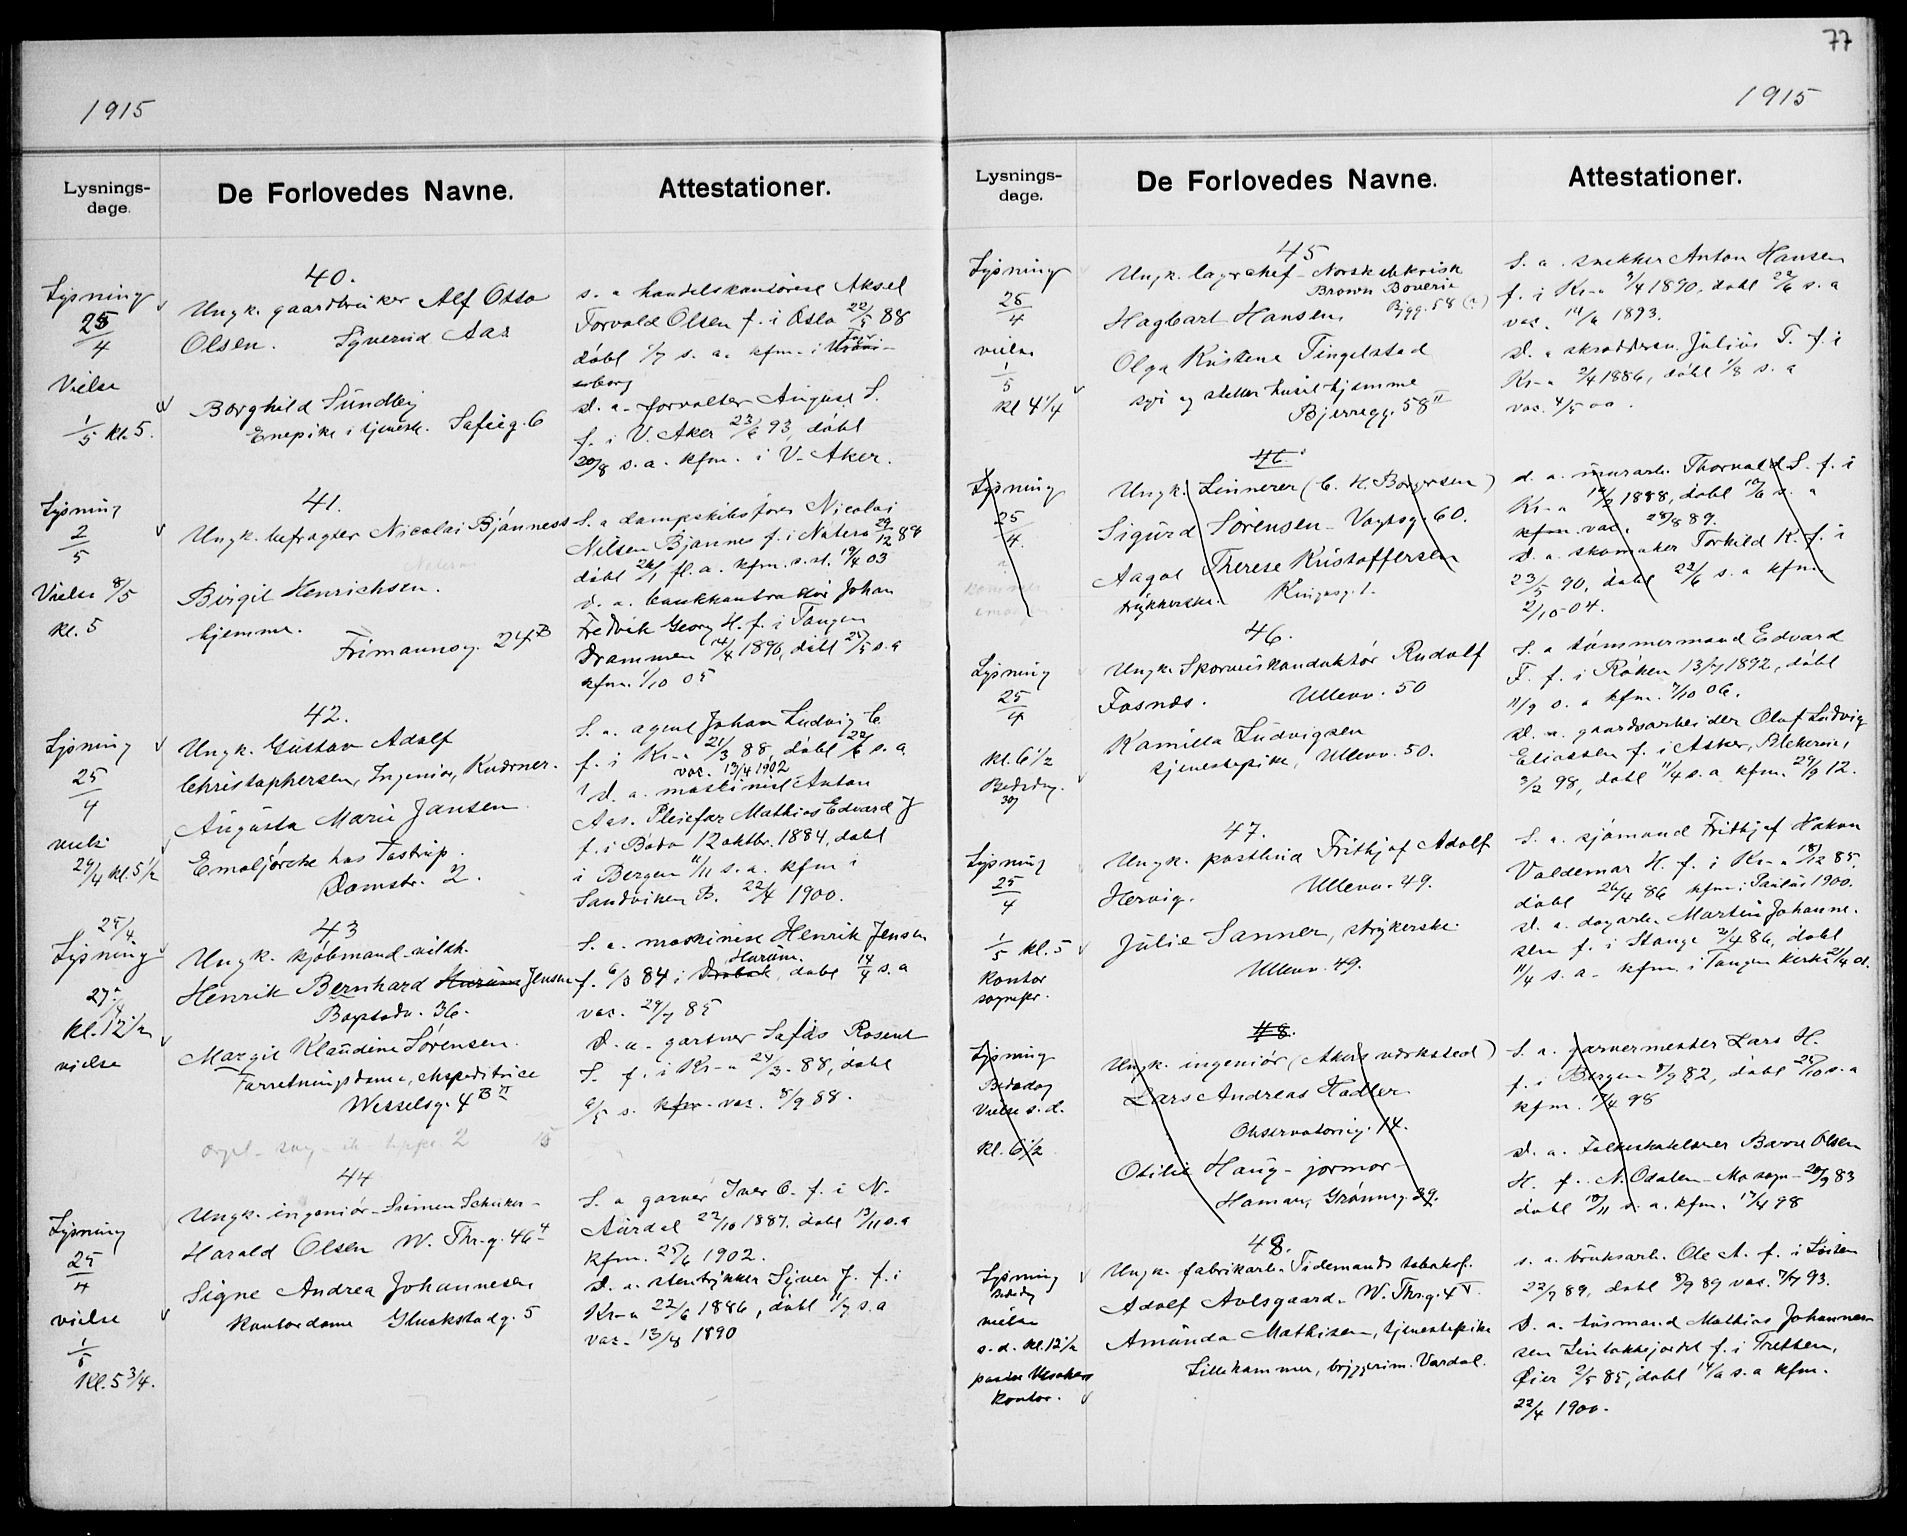 77
1915
Lysnings-
dage.
De Forlovedes Navne.
Attestationer.
40.
Lysning
25/4
Vielse
1/5 kl. 5.
Ungk. gaardbruker Alf Otto
Olsen. Syverud Aas
Borghild Sundby
Enepike i tjeneste. Sofieg. 6
s. a handelskontorist Aksel
Torvald Olsen f. i Oslo 22/5 88
døbt 1/7 s. a. kfm. i
d. a. forvalter August S.
f. i V. Aker 23/6 93, døbt
20/8 s. a. kfm. i V. Aker.
41.
Lysning
2/5
Vielse 8/5
kl. 5
Ungk. befragter Nicolai Bjønness
Birgit Henrichsen.
hjemme.
Frimannsg. 24 B
S. a dampskibsfører Nicolai
Nilsen Bjønnes f. i Nøterø 29/12 88
døbt 26/1 fl. a. kfm. s. st. 19/4 03
d. a. bankkontrollør Johan
Fredrik Georg H. f. i Tangen
Drammen 14/4 1890, døbt 25/5 s. a
kfm. 1/10 05
42.
Lysning
25/4
vielse
29/4 kl. 5 1/2
Ungk. Gustav Adolf
Christophersen, Ingeniør,
Augusta Marie Jansen
Emaljørske hos Tostrup.
Damstr. 2.
S. a. agent Johan Ludvig C.
f. i Kr-a 21/3 88, døbt 22/6 s. a
vac. 13/4 1902
d. a. maskinist Anton
Mathias Edvard J
f. i Bodø 12 oktbr. 1884, døbt
i Bergen 11/11 s. a. kfm i
Sandviken B. 22/4 1900.
43
25/4
Lysning
27/4
kl. 12 1/2
vielse
Ungk. kjøbmand
Henrik Bernhard Hurum Jensen
Bogstadv. 36.
Margit Klaudine Sørensen.
Forretningsdame, ekspeditrice
Wesselsg. 4 B II
S. a. maskinist Henrik Jensen
Hurum.
f. 6/3 84 i Drøbak, døbt 14/4 s. a
vac. 29/7 85
d. a. gartner Rosent
S. f. i Kr-a 24/3 88, døbt
6/5 s. kfm. vac. 8/9 88.
44
Lysning
25/4
vielse
1/5
Kl. 5 3/4.
Ungk. ingeniør - Siemen Schuker -
Harald Olsen W. Thr. g. 46 4
Signe Andrea Johannesen
Kontordame Gluckstadg. 5
S. a garver Iver O. f. i N.
Aurdal 22/10 1887. døbt 13/11 s. a
kfm. 25/6 1902.
d. a. stentrykker Syver J. f. i
Kr-a 22/6 1886, døbt 4/7 s. a
vac. 13/8 1890
1915
Lysnings-
dage.
De Forlovedes Navne.
Attestationer.
45
Lysning
25/4
vielse
1/5
kl 4 1/4
Ungk. lagerchef - Norsk elektrisk
Brown Boveri
Hagbart Hansen,
Olga Kristine Tingelstad
syr og steller huset hjemme
Bjerregg. 58 II
S. a. snekker Anton Hansen
f. i Kr-a 3/4 1890, døbt 22/6 s. a
vac. 14/6 1893.
d. a skræddersv. Julius T. f. i
Kr-a 2/4 1886, døbt 1/8 s. a
vac. 4/5 00.
46.
Lysning
25/4.
Ungk. Linnerer (C. H. Borgersen)
Sigurd Sørensen - Vogtsg. 60.
Aagot Therese Kristoffersen
strykerske. Ringsg. 1.
d. a. murarb. Thorvald S. f. i
Kr-a 12/2 1888, døbt 10/6 s. a
kfm. vac. 28/8 89.
d. a. skomaker Torkild K. f. i
23/5 90, døbt 22/6 s. a kfm
2/10-04.
46.
Lysning
25/4
kl. 6 1/2
Bededag.
Ungk. Sporveiskonduktør Rudolf
Fosnæs. Ullevv. 50
Kamilla Ludvigsen
tjenestepike, Ullevv. 50.
S. a tømmermand Edvard
F. f. i Røken 13/7 1892, døbt
11/9 s. a kfm. 7/10 06.
d. a. gaardsarbeider Oluf Ludvig
Eliassen f. i Asker,
3/2 98, døbt 11/4 s. a. kfm. 29/9 12.
47.
Lysning
25/4
1/5 kl. 5
kontor
sognepr.
Ungk. postbud Frithjof Adolf
Hervig. Ullevv. 49.
Julie Sanner, strykerske
Ullevv. 49.
S. a. sjømand Frithjof Hakon
Valdemar H. f. i Kr-a 18/12 85.
døbt 26/4 86 kfm. i Paulus 1900.
d. a. dagarb. Martin Johanne-
sen f. i Stange 2/4 86, døbt
11/4 s. a. kfm. i Tangen kirke
48.
Lysning
Bededag
Vielse s. d.
kl. 6 1/2
Ungk. ingeniør (Akers værksted)
Lars Andreas Hadler
Observatorieg. 14.
Otilie Haug - jormor -
Hamar, Grønneg. 39.
S. a. garvermester Lars H.
f. i Bergen 8/9 82, døbt 25/10 s. a
kfm. 17/4 98
d. a. Folkeskolelærer Olsen
H. f. N. Odalen - Mo sogn - 20/9 83
døbt 18/11 s. a. kfm. 17/4 98
48.
Lysning
vielse
s. d. kl. 12 1/2
kontor.
Ungk. fabrikarb. Tidemands tobaksf.
Adolf Avlsgaard. W. Thr. g. 4 V
Amanda Mathisen, tjenestepike
Lillehammer, bryggerim. Vardal.
s. a. bruksarb. Ole A. f. i Loiten
22/7 89, døbt 8/9 89 vac. 7/7 93.
d. a. husmand Mathias Johannes-
sen f. i Tretten,
Øier 2/5 85, døbt 14/6 s. a kfm.
22/4 1900.